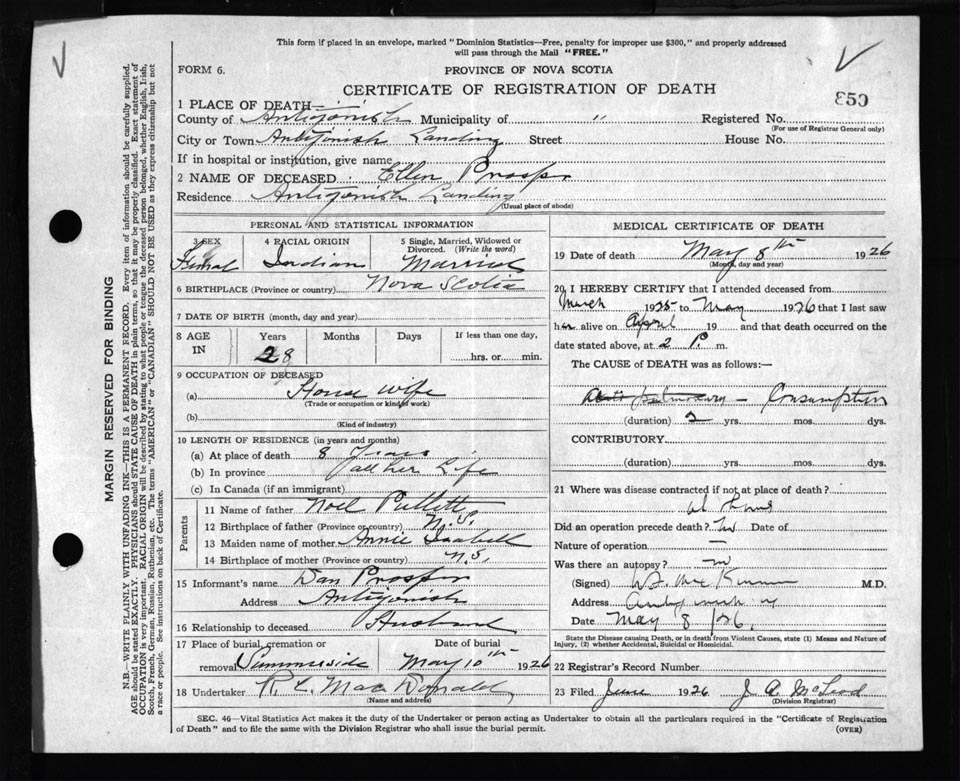 This form if placed in an envelope, marked "Dominion Statistics—Free, penalty for improper use $300," and properly addressed
will pass through the Mail "FREE."
FORM 6.
PROVINCE OF NOVA SCOTIA
CERTIFICATE OF REGISTRATION OF DEATH
1 PLACE OF DEATH—
County of Antigonish Municipality of " Registered No.
(For use of Registrar General only)
City or Town Antigonish Landing Street House No.
If in hospital or institution, give name
2 NAME OF DECEASED Ellen Prosper
Residence Antigonish Landing
(Usual place of abode)
PERSONAL AND STATISTICAL INFORMATION
3 SEX 4 RACIAL ORIGIN 5 Single, Married, Widowed or Divorced. (Write the word)
Femal Indian Married
6 BIRTHPLACE (Province or country) Nova Scotia
7 DATE OF BIRTH (month, day and year)
8 AGE IN Years Months Days If less than one day,
28 hrs. or min.
9 OCCUPATION OF DECEASED
(a) House wife
(Trade or occupation or kind of work)
(b)
(Kind of industry)
10 LENGTH OF RESIDENCE (in years and months)
(a) At place of death 8 Years
(b) In province all her Life
(c) In Canada (if an immigrant)
Parents
11 Name of father Noel
12 Birthplace of father (Province or country) N.S.
13 Maiden name of mother Annie Isabell
14 Birthplace of mother (Province or country) N.S.
15 Informant's name Dan Prosper
Address Antigonish
16 Relationship to deceased Husband
17 Place of burial, cremation or removal Summerside Date of burial May 10th 1926
18 Undertaker R. L. Mac Donald
(Name and address)
MEDICAL CERTIFICATE OF DEATH
19 Date of death May 8th 1926
(Month, day and year)
20 I HEREBY CERTIFY that I attended deceased from
March 1925 to May 1926 that I last saw
her alive on April 19 and that death occurred on the
date stated above, at 2 P. m.
The CAUSE of DEATH was as follows:—
pulmonary — Consumption
(duration) 2 yrs. mos. dys.
CONTRIBUTORY
(duration) yrs. mos. dys.
21 Where was disease contracted if not at place of death?
at home
Did an operation precede death? no Date of
Nature of operation —
Was there an autopsy? no
(Signed) W. F. Mac Kinnon M.D.
Address Antigonish
Date May 8/26.
State the Disease causing Death, or in death from Violent Causes, state (1) Means and Nature of
Injury, (2) whether Accidental, Suicidal or Homicidal.
22 Registrar's Record Number
23 Filed June 1926 J A McLeod
(Division Registrar)
SEC. 46—Vital Statistics Act makes it the duty of the Undertaker or person acting as Undertaker to obtain all the particulars required in the "Certificate of Registration
of Death" and to file the same with the Division Registrar who shall issue the burial permit.
(OVER)
MARGIN RESERVED FOR BINDING
N.B.—WRITE PLAINLY WITH UNFADING INK—THIS IS A PERMANENT RECORD. Every item of information should be carefully supplied.
AGE should be stated EXACTLY. PHYSICIANS should STATE CAUSE OF DEATH in plain terms, so that it may be properly classified. Exact statement of
OCCUPATION is very important. RACIAL ORIGIN will be described by stating to what people or tongue the deceased person belonged, whether English, Irish,
Scotch, French, German, Russian, Ruthenian, etc. The terms "AMERICAN" or "CANADIAN" SHOULD NOT BE USED as they express citizenship but not
a race or people. See instructions on back of Certificate.